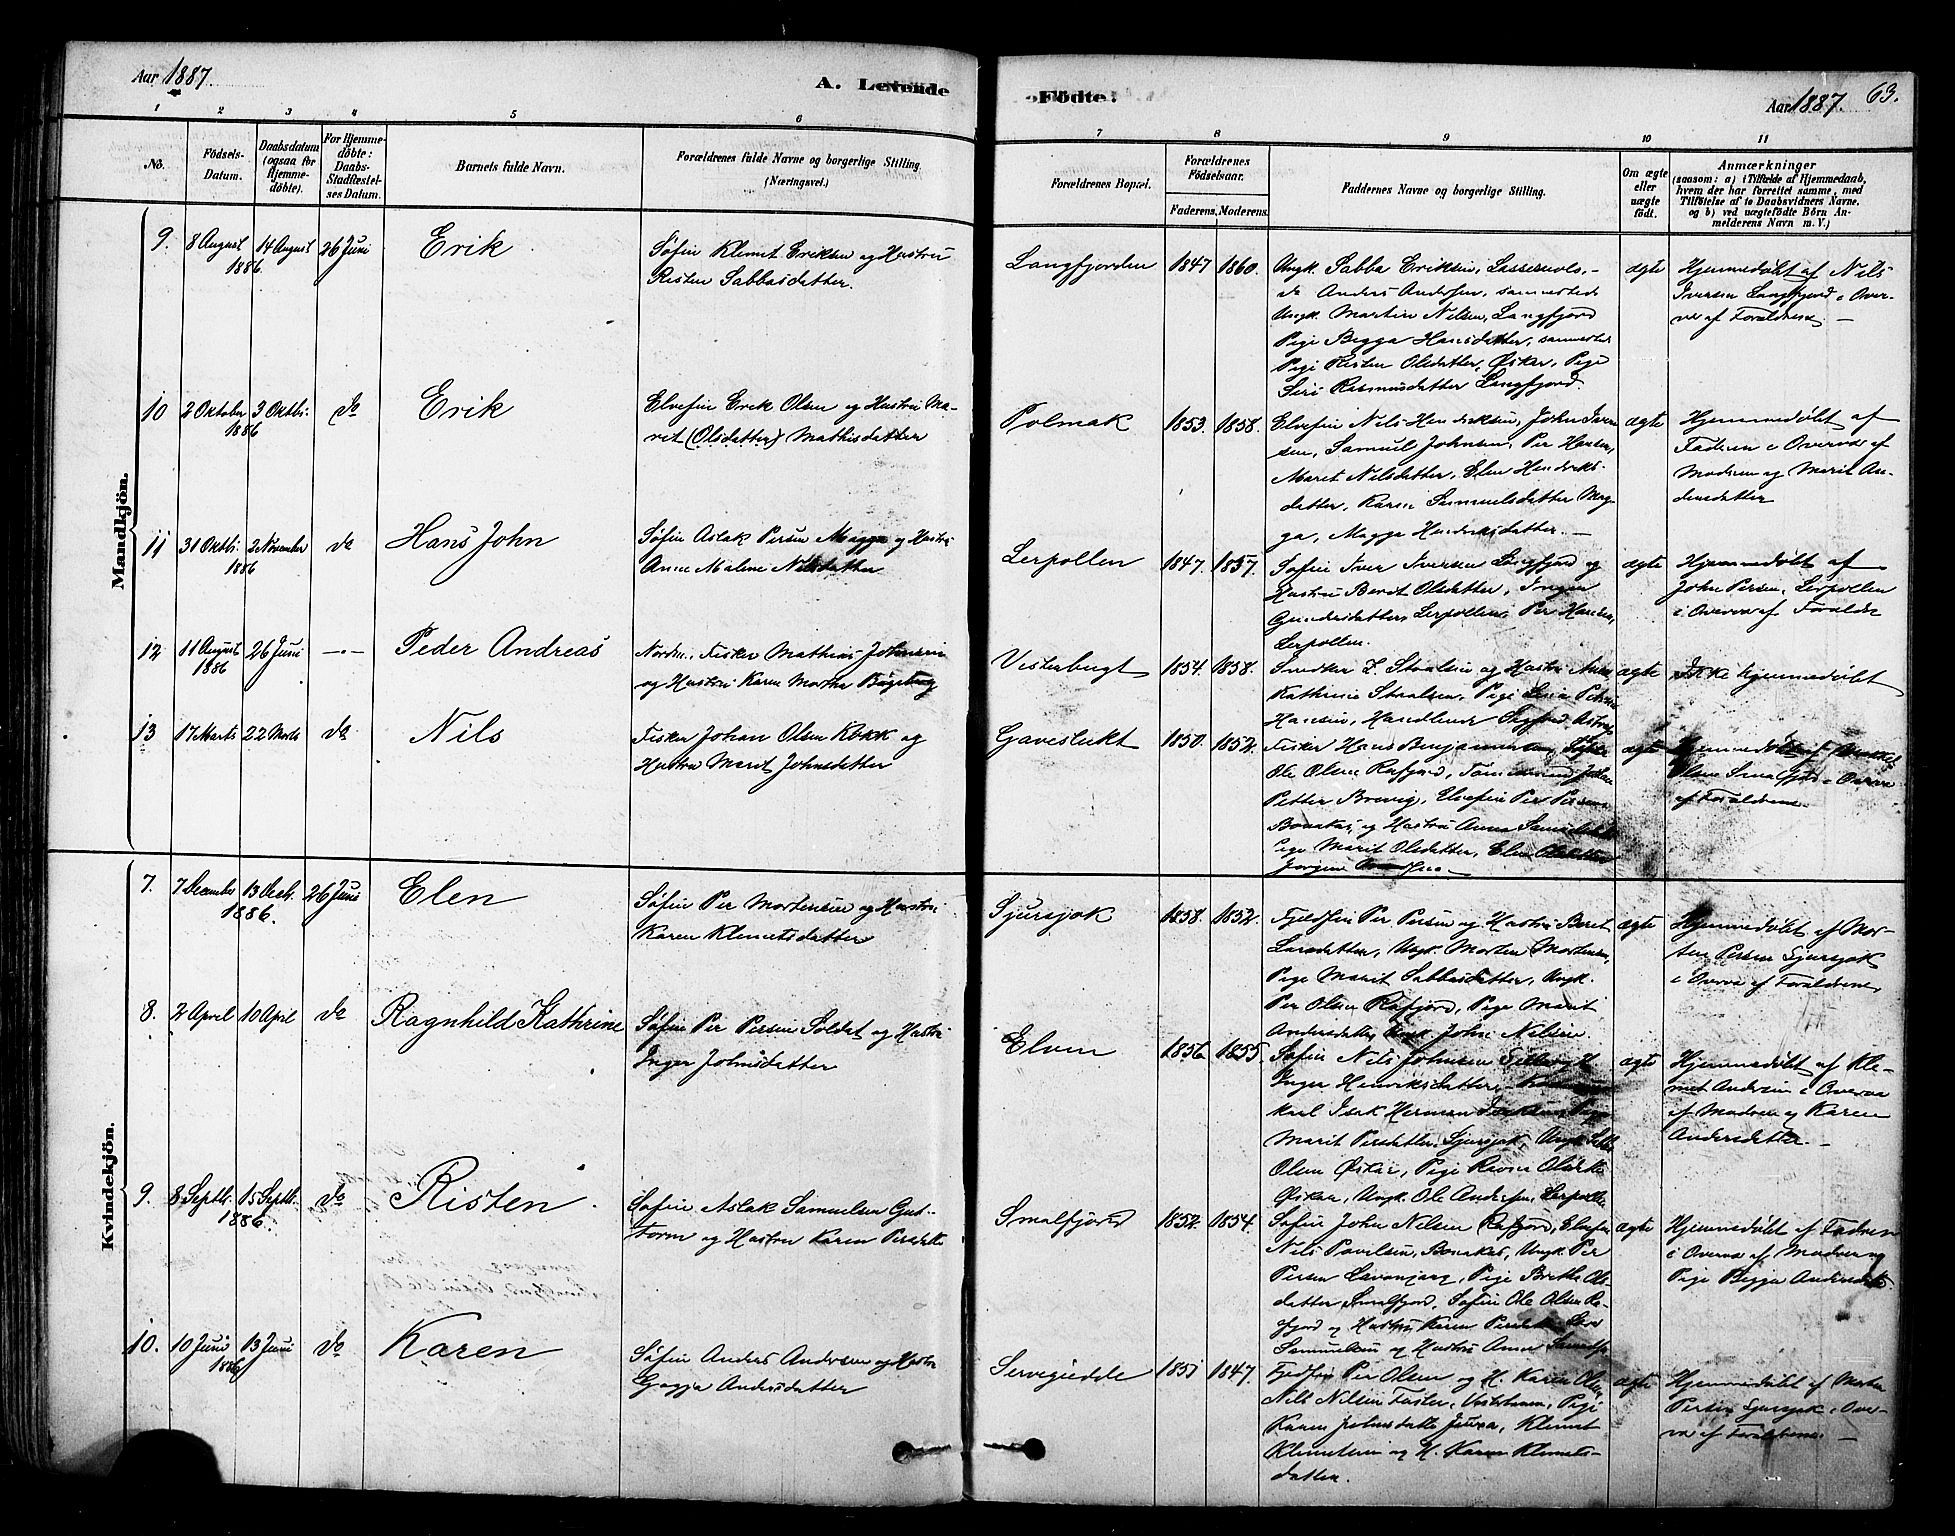 Aar 1887.
A. Levende
Födte.
Aar 1887. 63.
1 2 3 4 5 6 7 8 9 10 11
No.
Födsels-
Datum.
Daabsdatum
(ogsaa for
Hjemme-
döbte).
For Hjemme-
döbte:
Daabs-
Stadfæstel-
ses Datum.
Barnets fulde Navn.
Forældrenes fulde Navne og borgerlige Stilling
(Næringsvei.)
Forældrenes Bopæl.
Forældrenes
Födselsaar.
Faderens. Moderens.
Faddernes Navne og borgerlige Stilling.
Om ægte
eller
uægte
födt.
Anmærkninger
(saasom: a) i Tilfælde af Hjemmedaab,
hvem der har forrettet samme, med
Tilföielse af to Daabsvidners Navne.
og b) ved uægtefödte Börn An-
melderens Navn m. V.)
Mandkjön.
9. 8 August 14 August 26 Juni
1886.
Erik
Søfin Klemet Eriksen og Hustru
Risten Sabbasdatter.
Langfjorden 1847 1860.
Ungk. Sabba Eriksen,
do Anders Andersen, sammesteds
Ungk. Martin Nilsen, Langfjord
Pige Bigga Hansdatter, sammesteds
Pige Risten Olsdatter, Øskar, Pige
Siri Rasmusdatter Langfjord
ægte
Hjemmedøbt af Nils
Iversen Langfjord i Over-
vær af Forældrene. —
10 2 Oktober 3 Oktbr. do
1886
Erik
Elvefin Erik Olsen og Hustru Ma-
rit (Olsdatter) Mathisdatter
Polmak 1853. 1858.
Elvefin Nils Hendriksen, John Iver-
sen, Samuel Johnsen, Per Hansen,
Maret Nilsdatter, Elen Hendriks-
datter, Karen Samuelsdatter Mag-
ga, Magga Hendriksdatter. —
ægte
Hjemmedøbt af
Faderen i Overvær af
Modren og Marit An-
dersdatter
11 31 Oktbr. 2 November do
1886
Hans John
Søfin Aslak Persen Magga og Hustru
Anne Malene Nilsdatter
Lerpollen 1847. 1857.
Søfin Iver Iversen Langfjord og
Hustru Berit Olsdatter, Inger
Gundersdatter Lerpollen, Per Hansen,
Lerpollen.
ægte
Hjemmedøbt af
John Persen, Lerpollen
i Overvær af Forældre
12 11 August 26 Juni —.—
1886
Peder Andreas
Fisker Mathias Johnsen
og Hustru Karen Marthe
Vesterbugt 1854. 1858.
Snedker L. Staalsen og Hustru Anne
Kathrine Staalsen, Pige
Hansen, Handlende
ægte
Ikke hjemmedøbt
13 17 Marts 22 Marts do
Nils
Fisker Johan Olsen Kokk og
Hustru Marit Johnsdatter
Gaveslukt 1850. 1852.
Fisker Hans Benjaminsen,
Ole Olsen Rafjord,
Petter Brevig, Elvefin Per Persen
Bonakas, og Hustru Anna
Pige Marit Olsdatter, Elen Olsdatter
ægte
Hjemmedøbt af
Olsen Smalfjord i Overvær
af Forældrene.
Kvindekjön.
7. 7 December 13 Decb. 26 Juni
1886.
Elen
Søfin Per Mortensen og Hustru
Karen Klemetsdatter
Sjursjok 1858. 1852.
Fjeldfin Per Persen og Hustru Beret
Larsdatter, Ungk. Morten Mortensen,
Pige Marit Sabbasdatter, Ungk.
Per Olsen Rafjord, Pige Marit
Andersdatter, Ungk. John Nilsen
ægte
Hjemmedøbt af Mor-
ten Persen Sjursjok
i Overvær af Forældrene,
8. 2 April 10 April do
Ragnhild Kathrine
Søfin Per Persen Soldat og Hustru
Inger Johnsdatter
Elven 1856. 1855.
Søfin Nils Johnsen
Inger Henriksdatter,
karl Isak Herman Isaksen, Pige
Marit Persdatter, Sjursjok, Ungk.
Olsen Øskar, Pige Olsdatter
Øskar, Ungk. Ole Andersen, Lerpollen
ægte
Hjemmedøbt af Kle-
met Andersen i Overvær
af Modren og Karen
Andersdatter. —
9. 8 Septbr. 15 Septbr. do
1886.
Risten
Søfin Aslak Samuelsen Gut-
torm og Hustru Karen Persdatter
Smalfjord 1852. 1854.
Søfin John Nilsen Rafjord, Elvefin
Nils Pavelsen, Bonakas, Ungk. Per
Persen Lavonjarg, Pige Birthe Ols-
datter, Smalfjord, Søfin Ole Olsen Ra-
fjord og Hustru Karen Persdatter
Samuelsen og Hustru Anne
ægte
Hjemmedøbt af Fadren
i Overvær af Modren og
Pige Bigga Andersdatter
10. 10 Juni 13 Juni do
1886
Karen
Søfin Anders Andersen og Hustru
Gagja Andersdatter
Servegiedde 1851 1847.
Fjeldfin Per Olsen og H. Karen Olsen
Nils Nilsen Pige
Karen Johnsdatter Klemet
Klemetsen og H. Karen Klemets-
datter.
ægte
Hjemmedøbt af Morten
Persen Sjursjok i Over-
vær af Forældrene. —